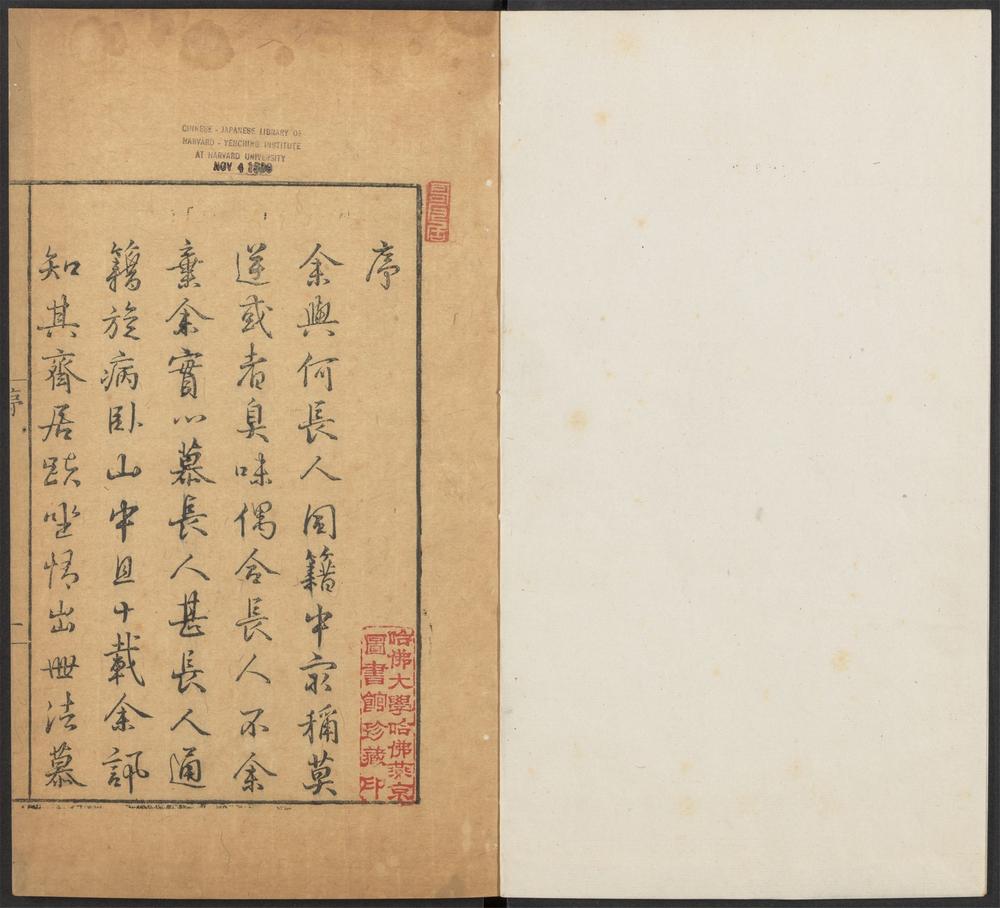 CHINESE - JAPANESE LIBRARY OF
HARVARD - YENCHING INSTITUTE
AT HARVARD UNIVERSITY
NOV 4
序
余與何長人同籍中㝡稱莫
逆或者臭味偶合長人不余
棄余實心慕長人甚長人通
籍旋病臥山中且十載余訊
知其齋居趺坐情出世法慕
哈佛大學哈佛燕京
圖書館珍藏印
序
一